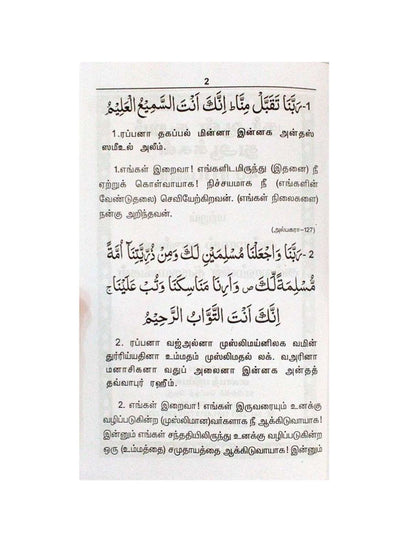 2
1- رَبَّنَا تَقَبَّلْ مِنَّا ط اِنَّكَ اَنْتَ السَّمِيْعُ الْعَلِيْمُ
1.ரப்பனா தகப்பல் மின்னா இன்னக அன்தஸ்
ஸமீஉல் அலீம்.
1.எங்கள் இறைவா! எங்களிடமிருந்து (இதனை) நீ
ஏற்றுக் கொள்வாயாக! நிச்சயமாக நீ (எங்களின்
வேண்டுதலை) செவியேற்கிறவன். (எங்கள் நிலைகளை)
நன்கு அறிந்தவன்.
(அல்பகரா-127)
2- رَبَّنَا وَاجْعَلْنَا مُسْلِمَيْنِ لَكَ وَمِنْ ذُرِّيَّتِنَآ اُمَّةً
مُّسْلِمَةً لَّكَ ص وَاَرِنَا مَنَاسِكَنَا وَتُبْ عَلَيْنَا ج
اِنَّكَ اَنْتَ التَّوَّابُ الرَّحِيْمُ
2. ரப்பனா வஜ்அல்னா முஸ்லிமய்னிலக வமின்
துர்ரிய்யதினா உம்மதம் முஸ்லிமதல் லக். வஅரினா
மனாசிகனா வதுப் அலைனா இன்னக அன்தத்
தவ்வாபுர் ரஹீம்.
2. எங்கள் இறைவா! எங்கள் இருவரையும் உனக்கு
வழிப்படுகின்ற (முஸ்லிமான)வர்களாக நீ ஆக்கிடுவாயாக!
இன்னும் எங்கள் சந்ததியிலிருந்து உனக்கு வழிப்படுகின்ற
ஒரு (உம்மத்தை) சமுதாயத்தை ஆக்கிடுவாயாக! இன்னும்